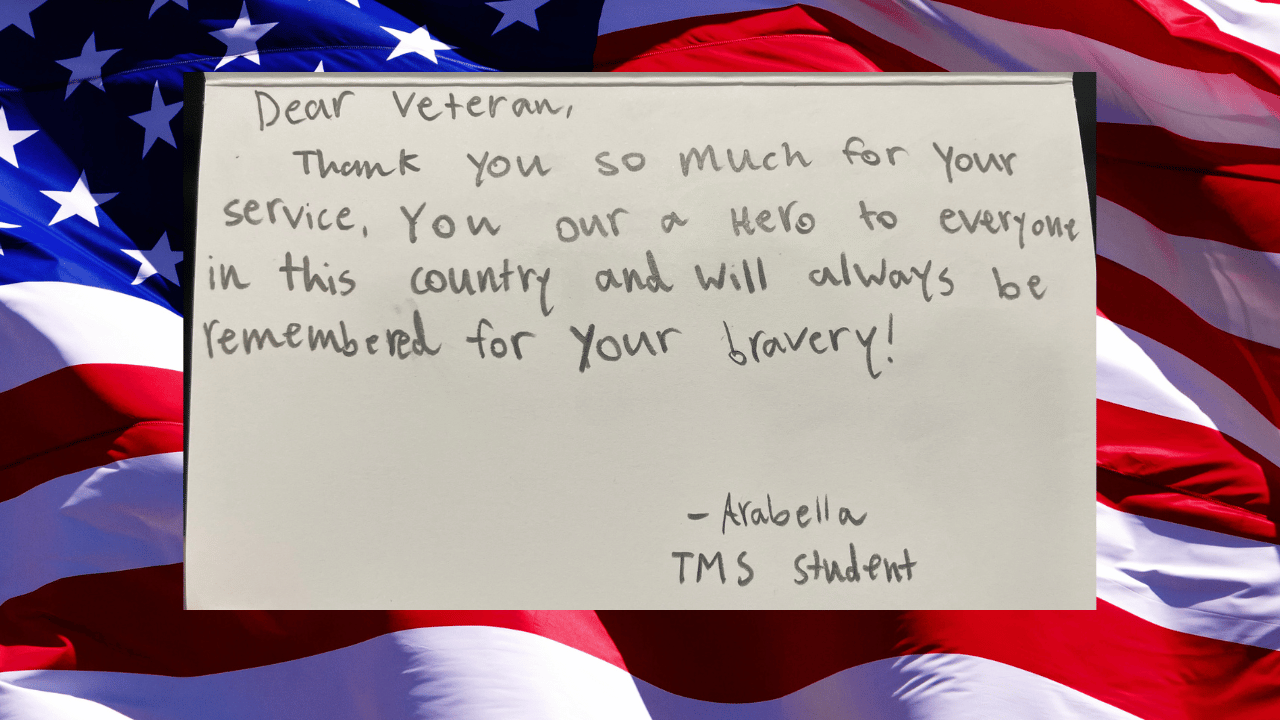 Dear Veteran,
Thank you so much for your
service, You our a Hero to everyone
in this country and will always be
remembered for your bravery!
- Arabella
TMS student